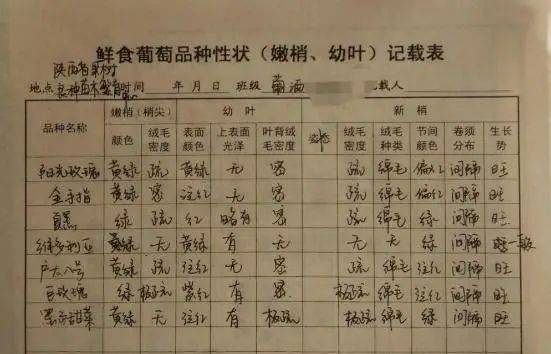 鲜食葡萄品种性状（嫩梢、幼叶）记载表
陕西省果树
地点 良种苗木繁育 时间 年 月 日 班级 葡酒 记载人
嫩梢（梢尖） 幼叶 新梢
品种名称 颜色 绒毛密度 表面颜色 上表面光泽 叶背绒毛密度 姿态 绒毛密度 绒毛种类 节间颜色 卷须分布 生长势
阳光玫瑰 黄绿 疏 黄绿 无 密 疏 绵毛 偏红 间隔 旺
金手指 黄绿 密 注红 无 密 疏 绵毛 偏红 间隔 旺
夏黑 绿 疏 红 略有 密 疏 绵毛 绿 间隔 旺
维多利亚 黄绿 无 黄绿 有 无 无 无 绿 间隔 一般
户太八号 黄绿 疏 注红 无 密 疏 绵毛 注红 间隔 旺
巨玫瑰 绿 极疏 紫红 有 密 极疏 绵毛 注红 间隔 旺
黑甜菜 黄绿 无 注红 有 极疏 极疏 绵毛 绿 间隔 旺